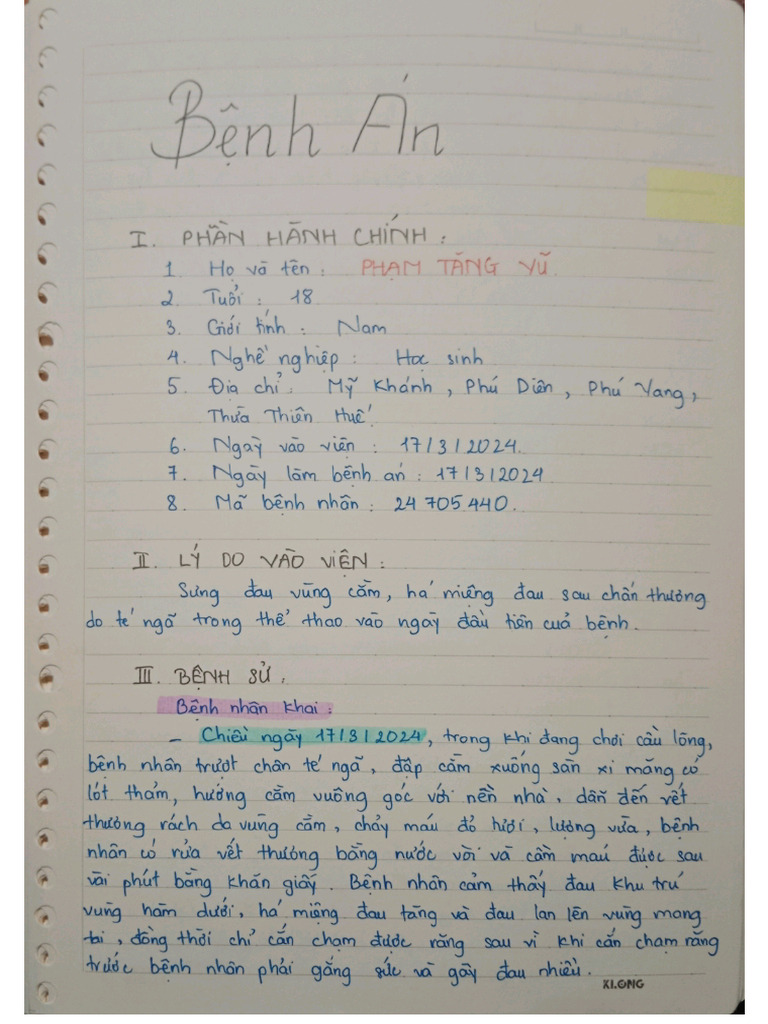 Bệnh Án
I. PHẦN HÀNH CHÍNH :
1 Họ và tên : PHẠM TĂNG VŨ
2. Tuổi : 18
3. Giới tính : Nam
4. Nghề nghiệp : Học sinh
5. Địa chỉ : Mỹ Khánh , Phú Diên , Phú Vang ,
Thừa Thiên Huế
6. Ngày vào viện : 17/3/2024.
7. Ngày làm bệnh án : 17/3/2024
8. Mã bệnh nhân : 24 705 440.
II. LÝ DO VÀO VIỆN :
Sưng đau vùng cằm, há miệng đau sau chấn thương
do té ngã trong thể thao vào ngày đầu tiên của bệnh.
III. BỆNH SỬ :
Bệnh nhân khai :
- Chiều ngày 17/3/2024, trong khi đang chơi cầu lông,
bệnh nhân trượt chân té ngã, đập cằm xuống sàn xi măng có
lót thảm, hướng cằm vuông góc với nền nhà, dẫn đến vết
thương rách da vùng cằm, chảy máu đỏ tươi, lượng vừa, bệnh
nhân có rửa vết thương bằng nước vòi và cầm máu được sau
vài phút bằng khăn giấy. Bệnh nhân cảm thấy đau khu trú
vùng hàm dưới, há miệng đau tăng và đau lan lên vùng mang
tai, đồng thời chỉ cắn chạm được răng sau vì khi cắn chạm răng
trước bệnh nhân phải gắng sức và gây đau nhiều.
KLONG